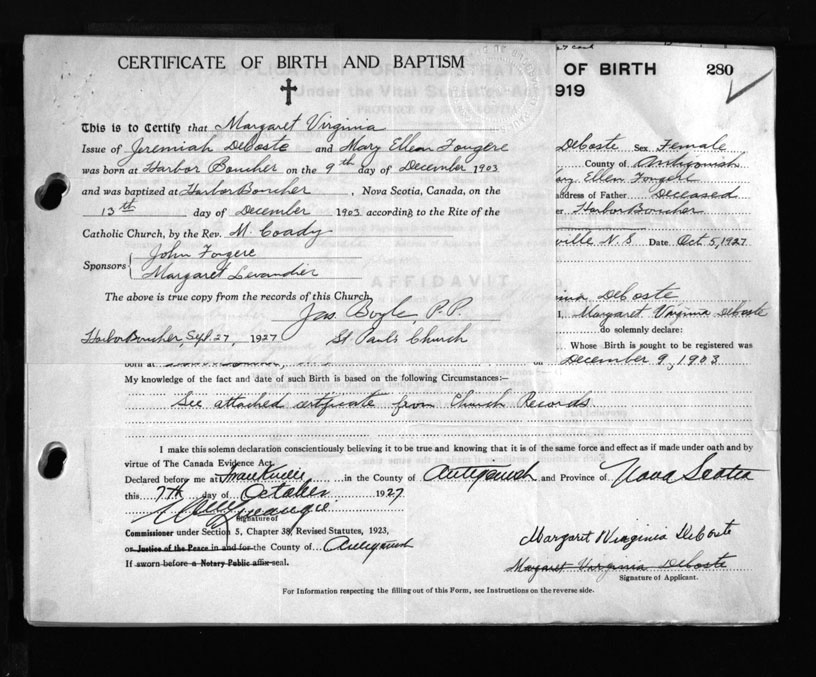 CERTIFICATE OF BIRTH AND BAPTISM
This is to Certify that Margaret Virginia
Issue of Jeremiah DeCoste and Mary Ellen Fougere
was born at Harbor Boucher on the 9th day of December 1903
and was baptized at Harbor Boucher, Nova Scotia, Canada, on the
13th day of December 1903 according to the Rite of the
Catholic Church, by the Rev. M. Coady
Sponsors { John Fougere
Margaret Levandier
The above is true copy from the records of this Church,
Jas. Boyle, P.P.
Harbor Boucher, Sept 27, 1927 St Paul's Church
OF BIRTH 280
1919
DeCoste Sex Female
County of Antigonish
Mary Ellen Fougere
address of Father Deceased
Harbor Boucher
ville N.S Date Oct 5, 1927
AFFIDAVIT
DeCoste
I, Margaret Virginia DeCoste
do solemnly declare:
Whose Birth is sought to be registered was
born at on December 9, 1903
My knowledge of the fact and date of such Birth is based on the following Circumstances:—
See attached certificate from Church Records
I make this solemn declaration conscientiously believing it to be true and knowing that it is of the same force and effect as if made under oath and by
virtue of The Canada Evidence Act.
Declared before me at in the County of Antigonish and Province of Nova Scotia
this 7th day of October 1927
Signature of
Commissioner under Section 5, Chapter 38, Revised Statutes, 1923,
or Justice of the Peace in and for the County of Antigonish
If sworn before a Notary Public affix seal.
Margaret Virginia DeCoste
Margaret Virginia DeCoste
Signature of Applicant.
For Information respecting the filling out of this Form, see Instructions on the reverse side.